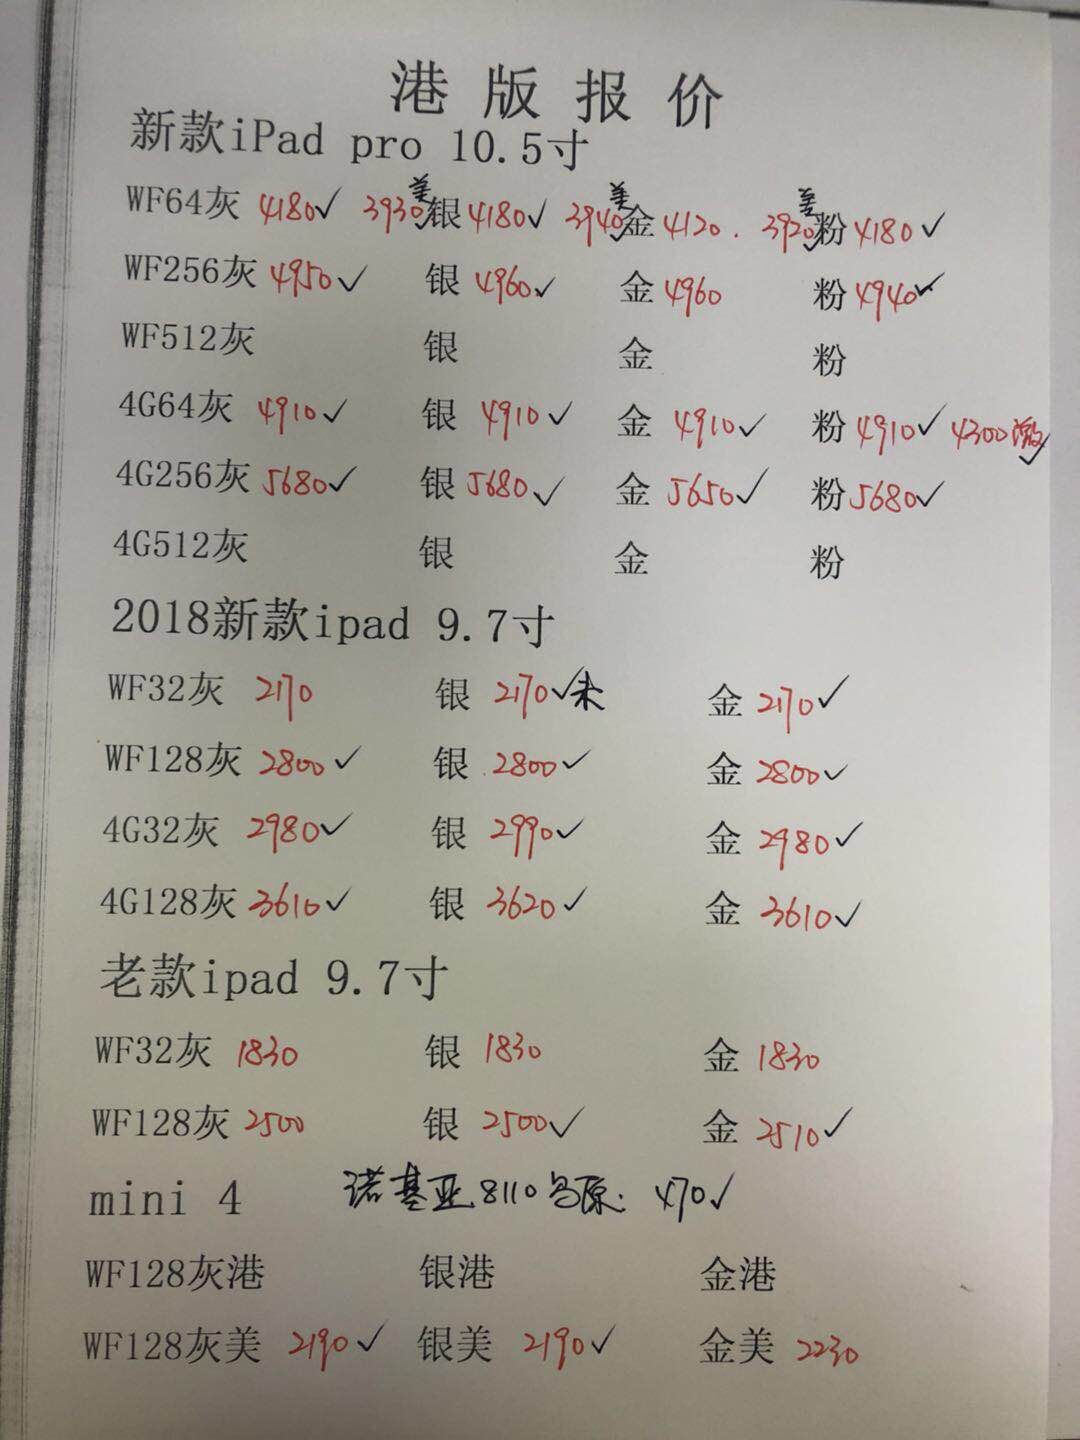 港版报价
新款iPad pro 10.5寸
WF64灰 4180✓ 3930美✓ 银 4180✓ 3940美✓ 金 4120. 3920美✓ 粉 4180✓
WF256灰 4950✓ 银 4960✓ 金 4960 粉 4940✓
WF512灰 银 金 粉
4G64灰 4910✓ 银 4910✓ 金 4910✓ 粉 4910✓ 4300激✓
4G256灰 5680✓ 银 5680✓ 金 5650✓ 粉 5680✓
4G512灰 银 金 粉
2018新款ipad 9.7寸
WF32灰 2170 银 2170✓未 金 2170✓
WF128灰 2800✓ 银 2800✓ 金 2800✓
4G32灰 2980✓ 银 2990✓ 金 2980✓
4G128灰 3610✓ 银 3620✓ 金 3610✓
老款ipad 9.7寸
WF32灰 1830 银 1830 金 1830
WF128灰 2500 银 2500✓ 金 2510✓
mini 4 诺基亚8110马原: 470✓
WF128灰港 银港 金港
WF128灰美 2190✓ 银美 2190✓ 金美 2230